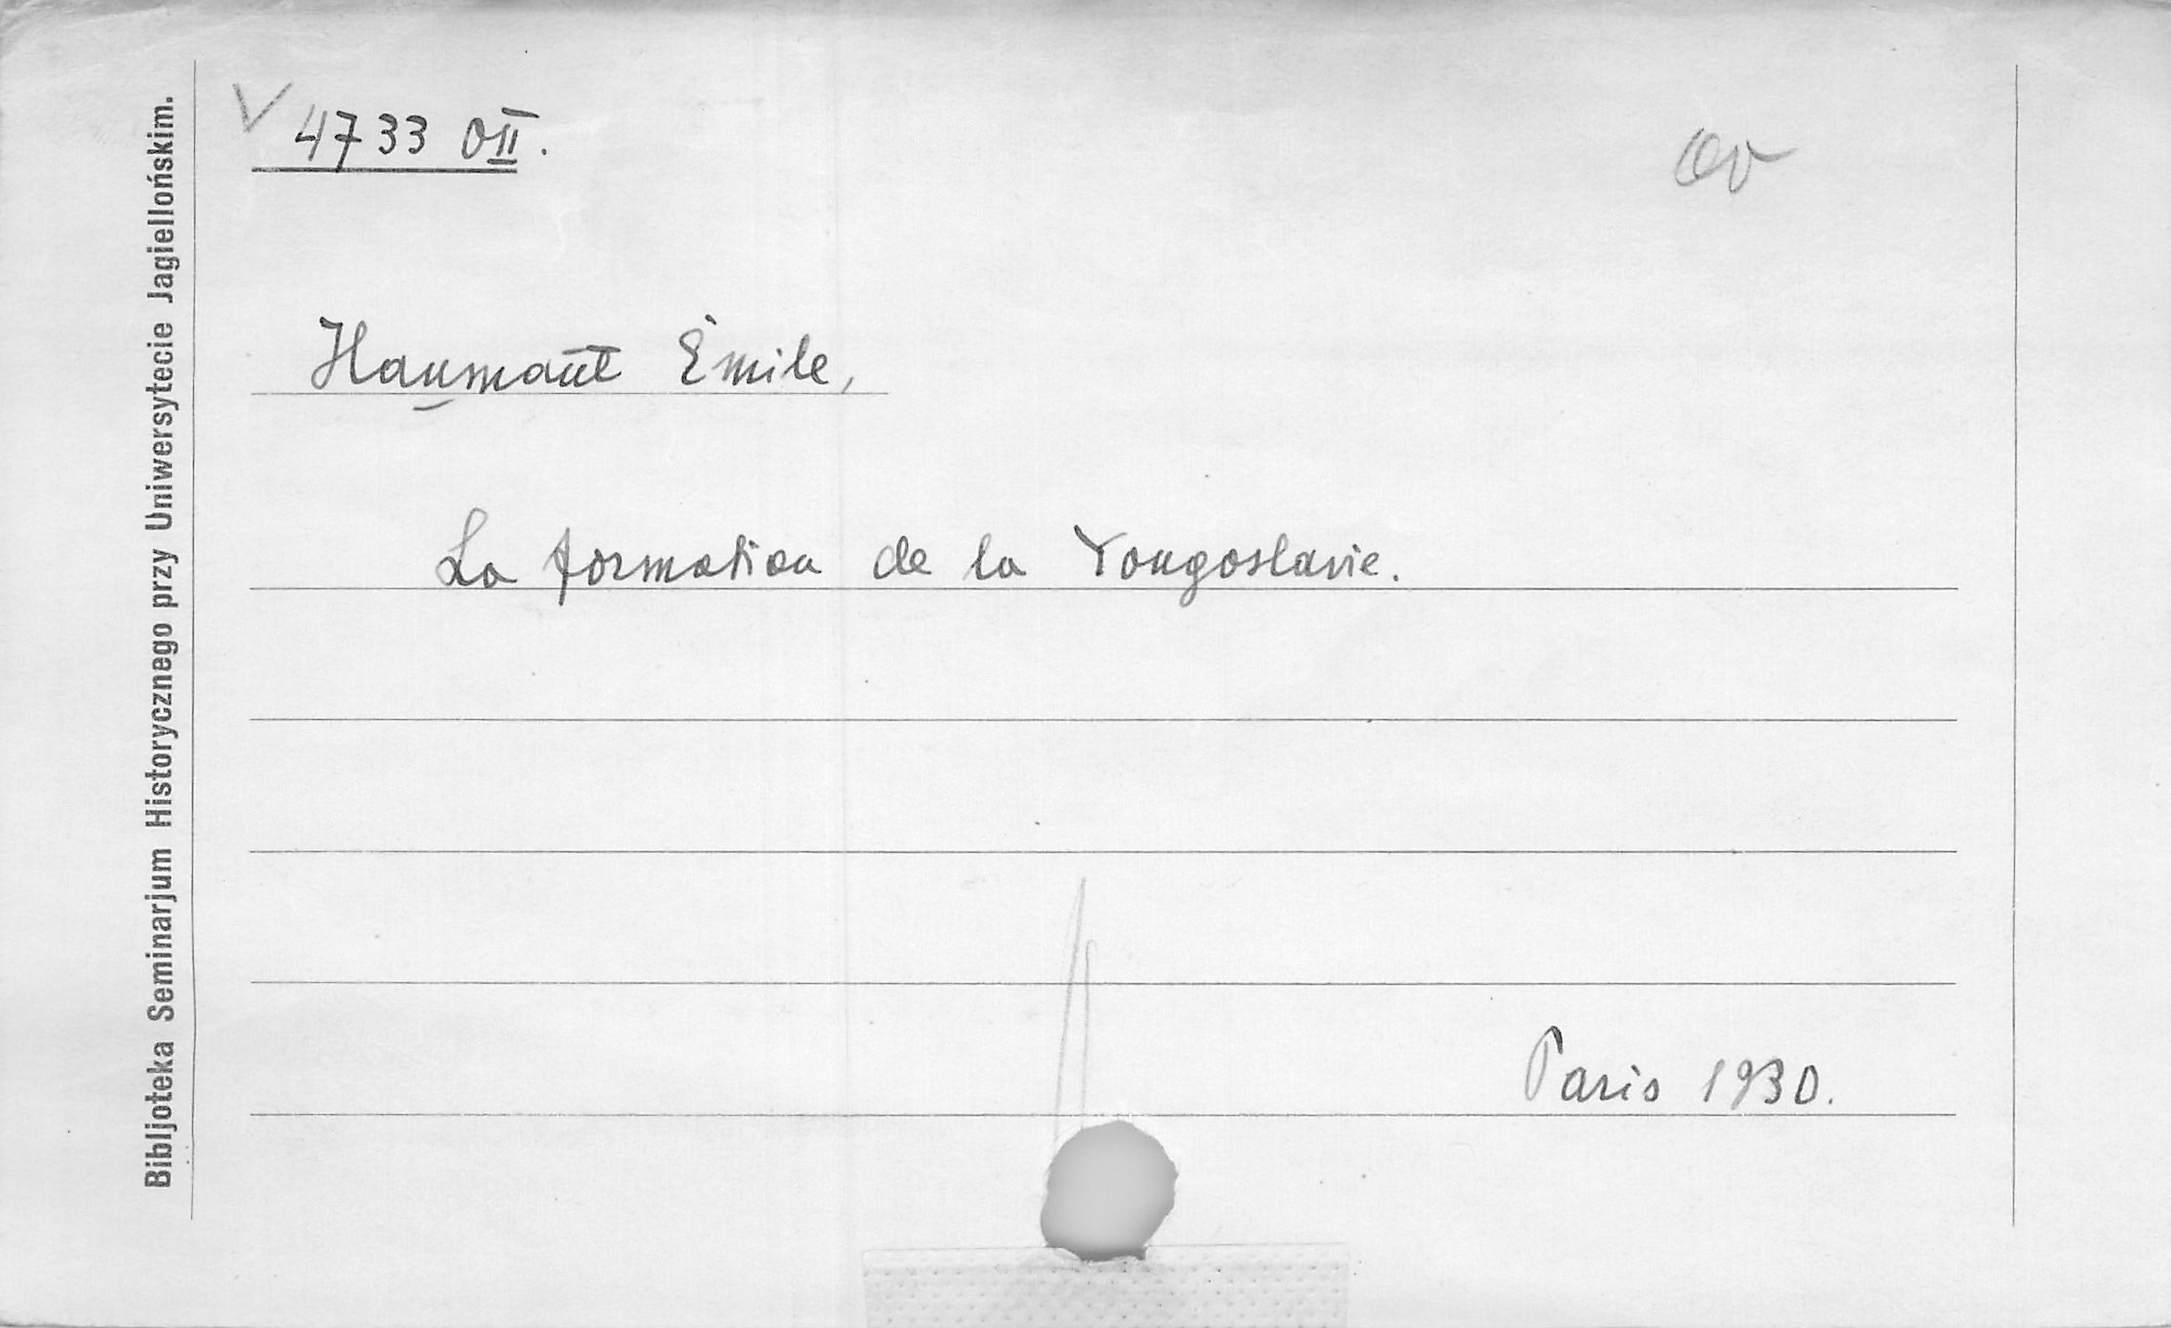 4733 OII.
Haumant Emile,
La formation de la Yougoslavie.
Paris 1930.
Bibljoteka Seminarjum Historycznego przy Uniwersytecie Jagiellońskim.